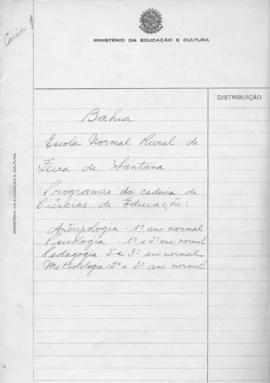 Caixa 1
MINISTÉRIO DA EDUCAÇÃO E CULTURA
DISTRIBUIÇÃO
Bahia
Escola Normal Rural de
Feira de Santana
Programas da cadeira de
Ciências de Educação:
Antropologia - 1º ano normal
Psicologia - 1º e 2º ano normal
Pedagogia 2º e 3º ano normal
Metodologia 2º e 3º ano normal
MINISTÉRIO DA EDUCAÇÃO E CULTURA